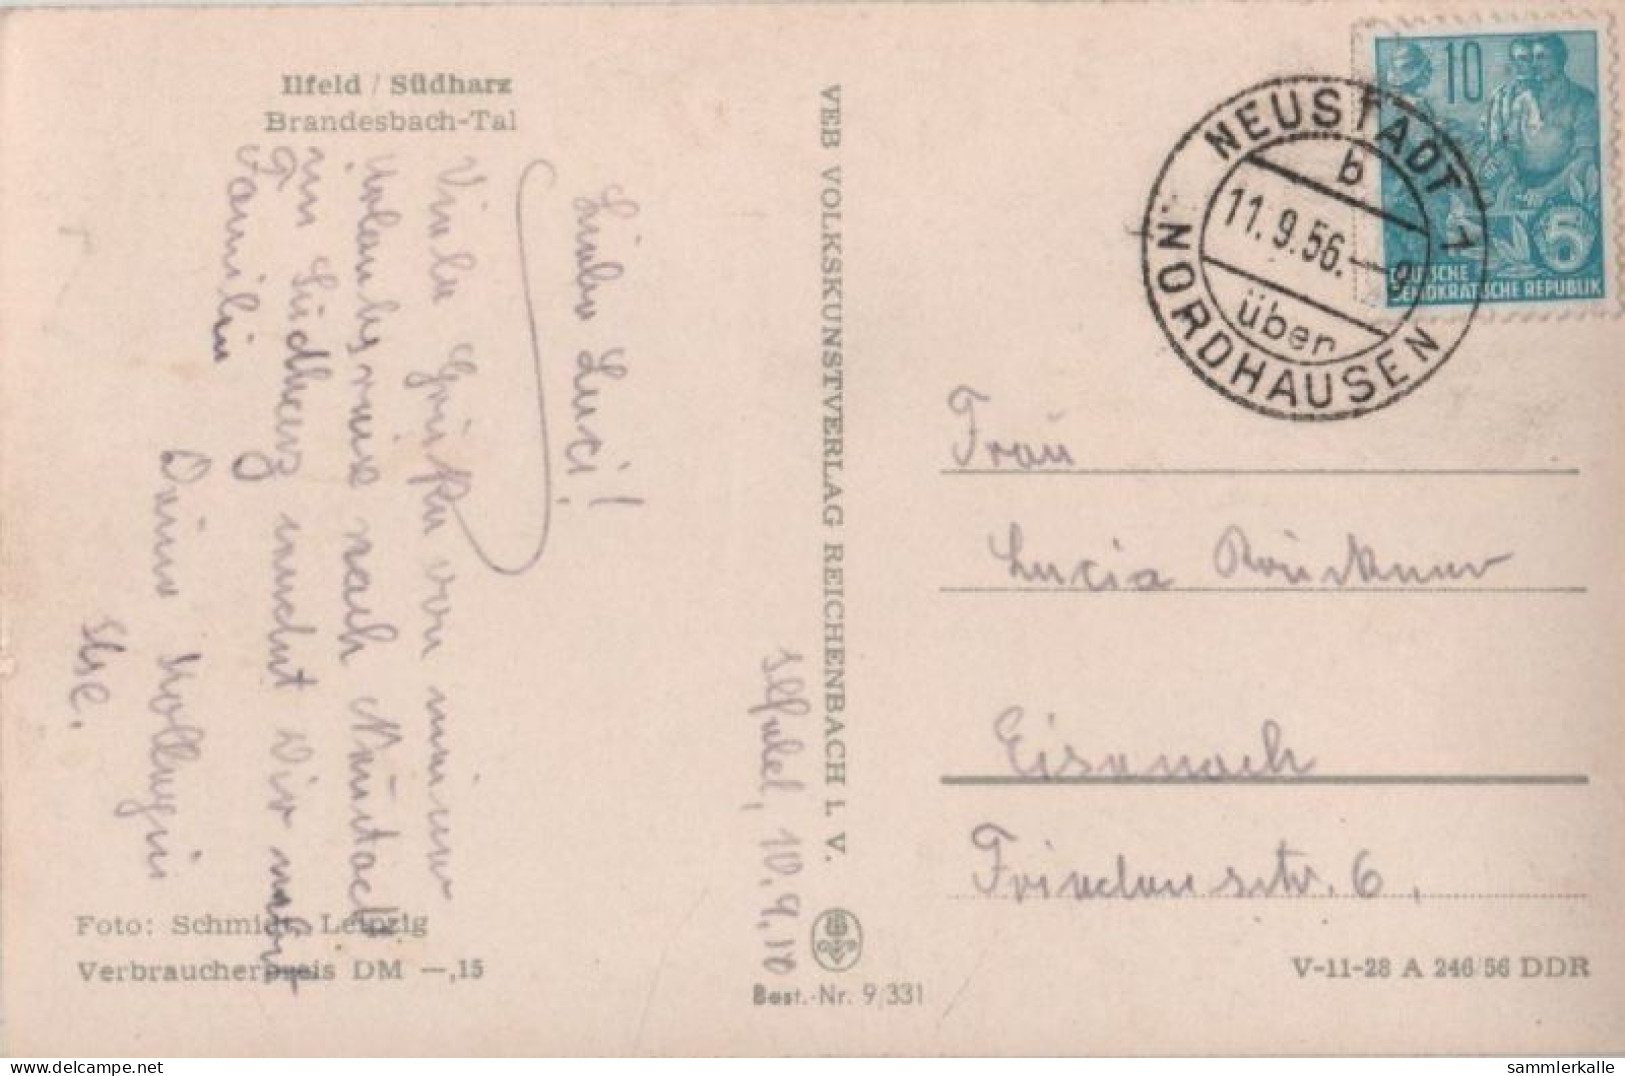 Ilfeld / Südharz
Brandesbach-Tal
Liebe Luci!
Viele Grüße von meiner
Urlaubsreise nach Neustadt
im Südharz sendet Dir nebst
Familie
Deine Kollegin
Ilse.
Foto: Schmidt, Leipzig
Verbraucherpreis DM —,15
VEB VOLKSKUNSTVERLAG REICHENBACH I. V.
Ilfeld, 10.9.
Best.-Nr. 9/331
NEUSTADT 1
b
11.9.56.—9
über
NORDHAUSEN
10
5
DEUTSCHE
DEMOKRATISCHE REPUBLIK
Frau
Lucia Brückner
Eisenach
Friedensstr. 6.
V-11-28 A 246/56 DDR
sammlerkalle